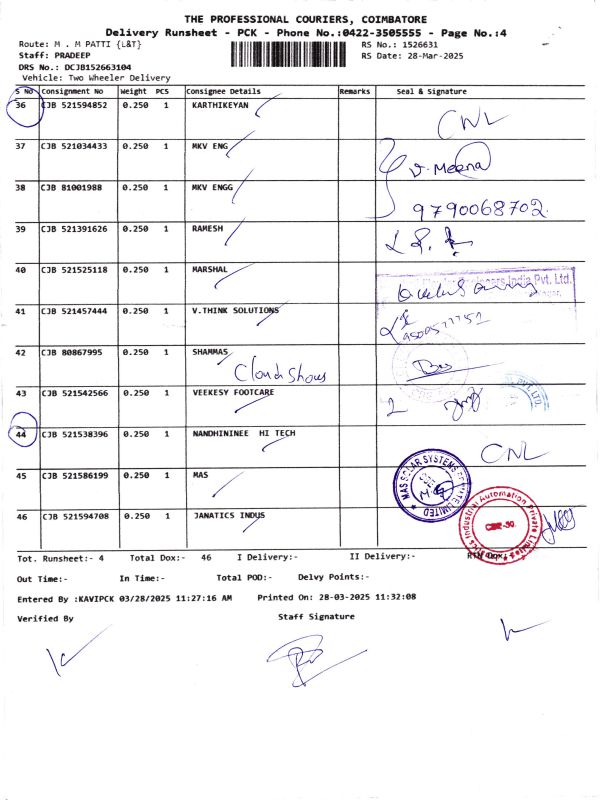 THE PROFESSIONAL COURIERS, COIMBATORE
Delivery Runsheet - PCK - Phone No.:0422-3505555 - Page No.:4
Route: M . M PATTI {L&T} RS No.: 1526631
Staff: PRADEEP RS Date: 28-Mar-2025
DRS No.: DCJB152663104
Vehicle: Two Wheeler Delivery
S No Consignment No Weight PCS Consignee Details Remarks Seal & Signature
36 CJB 521594852 0.250 1 KARTHIKEYAN CNL
37 CJB 521034433 0.250 1 MKV ENG V. Meena
38 CJB 81001988 0.250 1 MKV ENGG 9790068702.
39 CJB 521391626 0.250 1 RAMESH
40 CJB 521525118 0.250 1 MARSHAL India Pvt. Ltd.
41 CJB 521457444 0.250 1 V.THINK SOLUTIONS
42 CJB 80867995 0.250 1 SHAMMAS
Cloud Shoes
43 CJB 521542566 0.250 1 VEEKESY FOOTCARE PVT. LTD.
44 CJB 521538396 0.250 1 NANDHININEE HI TECH CNL
45 CJB 521586199 0.250 1 MAS MAS SOLAR SYSTEMS PRIVATE LIMITED
46 CJB 521594708 0.250 1 JANATICS INDUS Industrial Automation Private Limited
Tot. Runsheet:- 4 Total Dox:- 46 I Delivery:- II Delivery:-
Out Time:- In Time:- Total POD:- Delvy Points:-
Entered By :KAVIPCK 03/28/2025 11:27:16 AM Printed On: 28-03-2025 11:32:08
Verified By Staff Signature